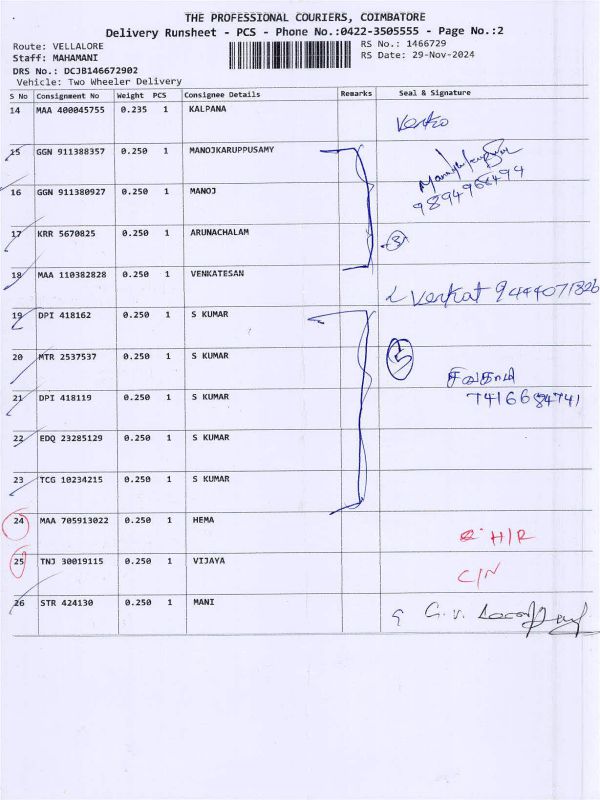 THE PROFESSIONAL COURIERS, COIMBATORE
Delivery Runsheet - PCS - Phone No.:0422-3505555 - Page No.:2
Route: VELLALORE
RS No.: 1466729
Staff: MAHAMANI
RS Date: 29-Nov-2024
DRS No.: DCJB146672902
Vehicle: Two Wheeler Delivery
S No Consignment No Weight PCS Consignee Details Remarks Seal & Signature
14 MAA 400045755 0.235 1 KALPANA
15 GGN 911388357 0.250 1 MANOJKARUPPUSAMY
16 GGN 911380927 0.250 1 MANOJ
9894968494
17 KRR 5670825 0.250 1 ARUNACHALAM
3
18 MAA 110382828 0.250 1 VENKATESAN
Venkat 9444071826
19 DPI 418162 0.250 1 S KUMAR
20 MTR 2537537 0.250 1 S KUMAR
5
சிவகாமி
21 DPI 418119 0.250 1 S KUMAR
22 EDQ 23285129 0.250 1 S KUMAR
23 TCG 10234215 0.250 1 S KUMAR
24 MAA 705913022 0.250 1 HEMA
H/R
25 TNJ 30019115 0.250 1 VIJAYA
C/N
26 STR 424130 0.250 1 MANI
G. V.